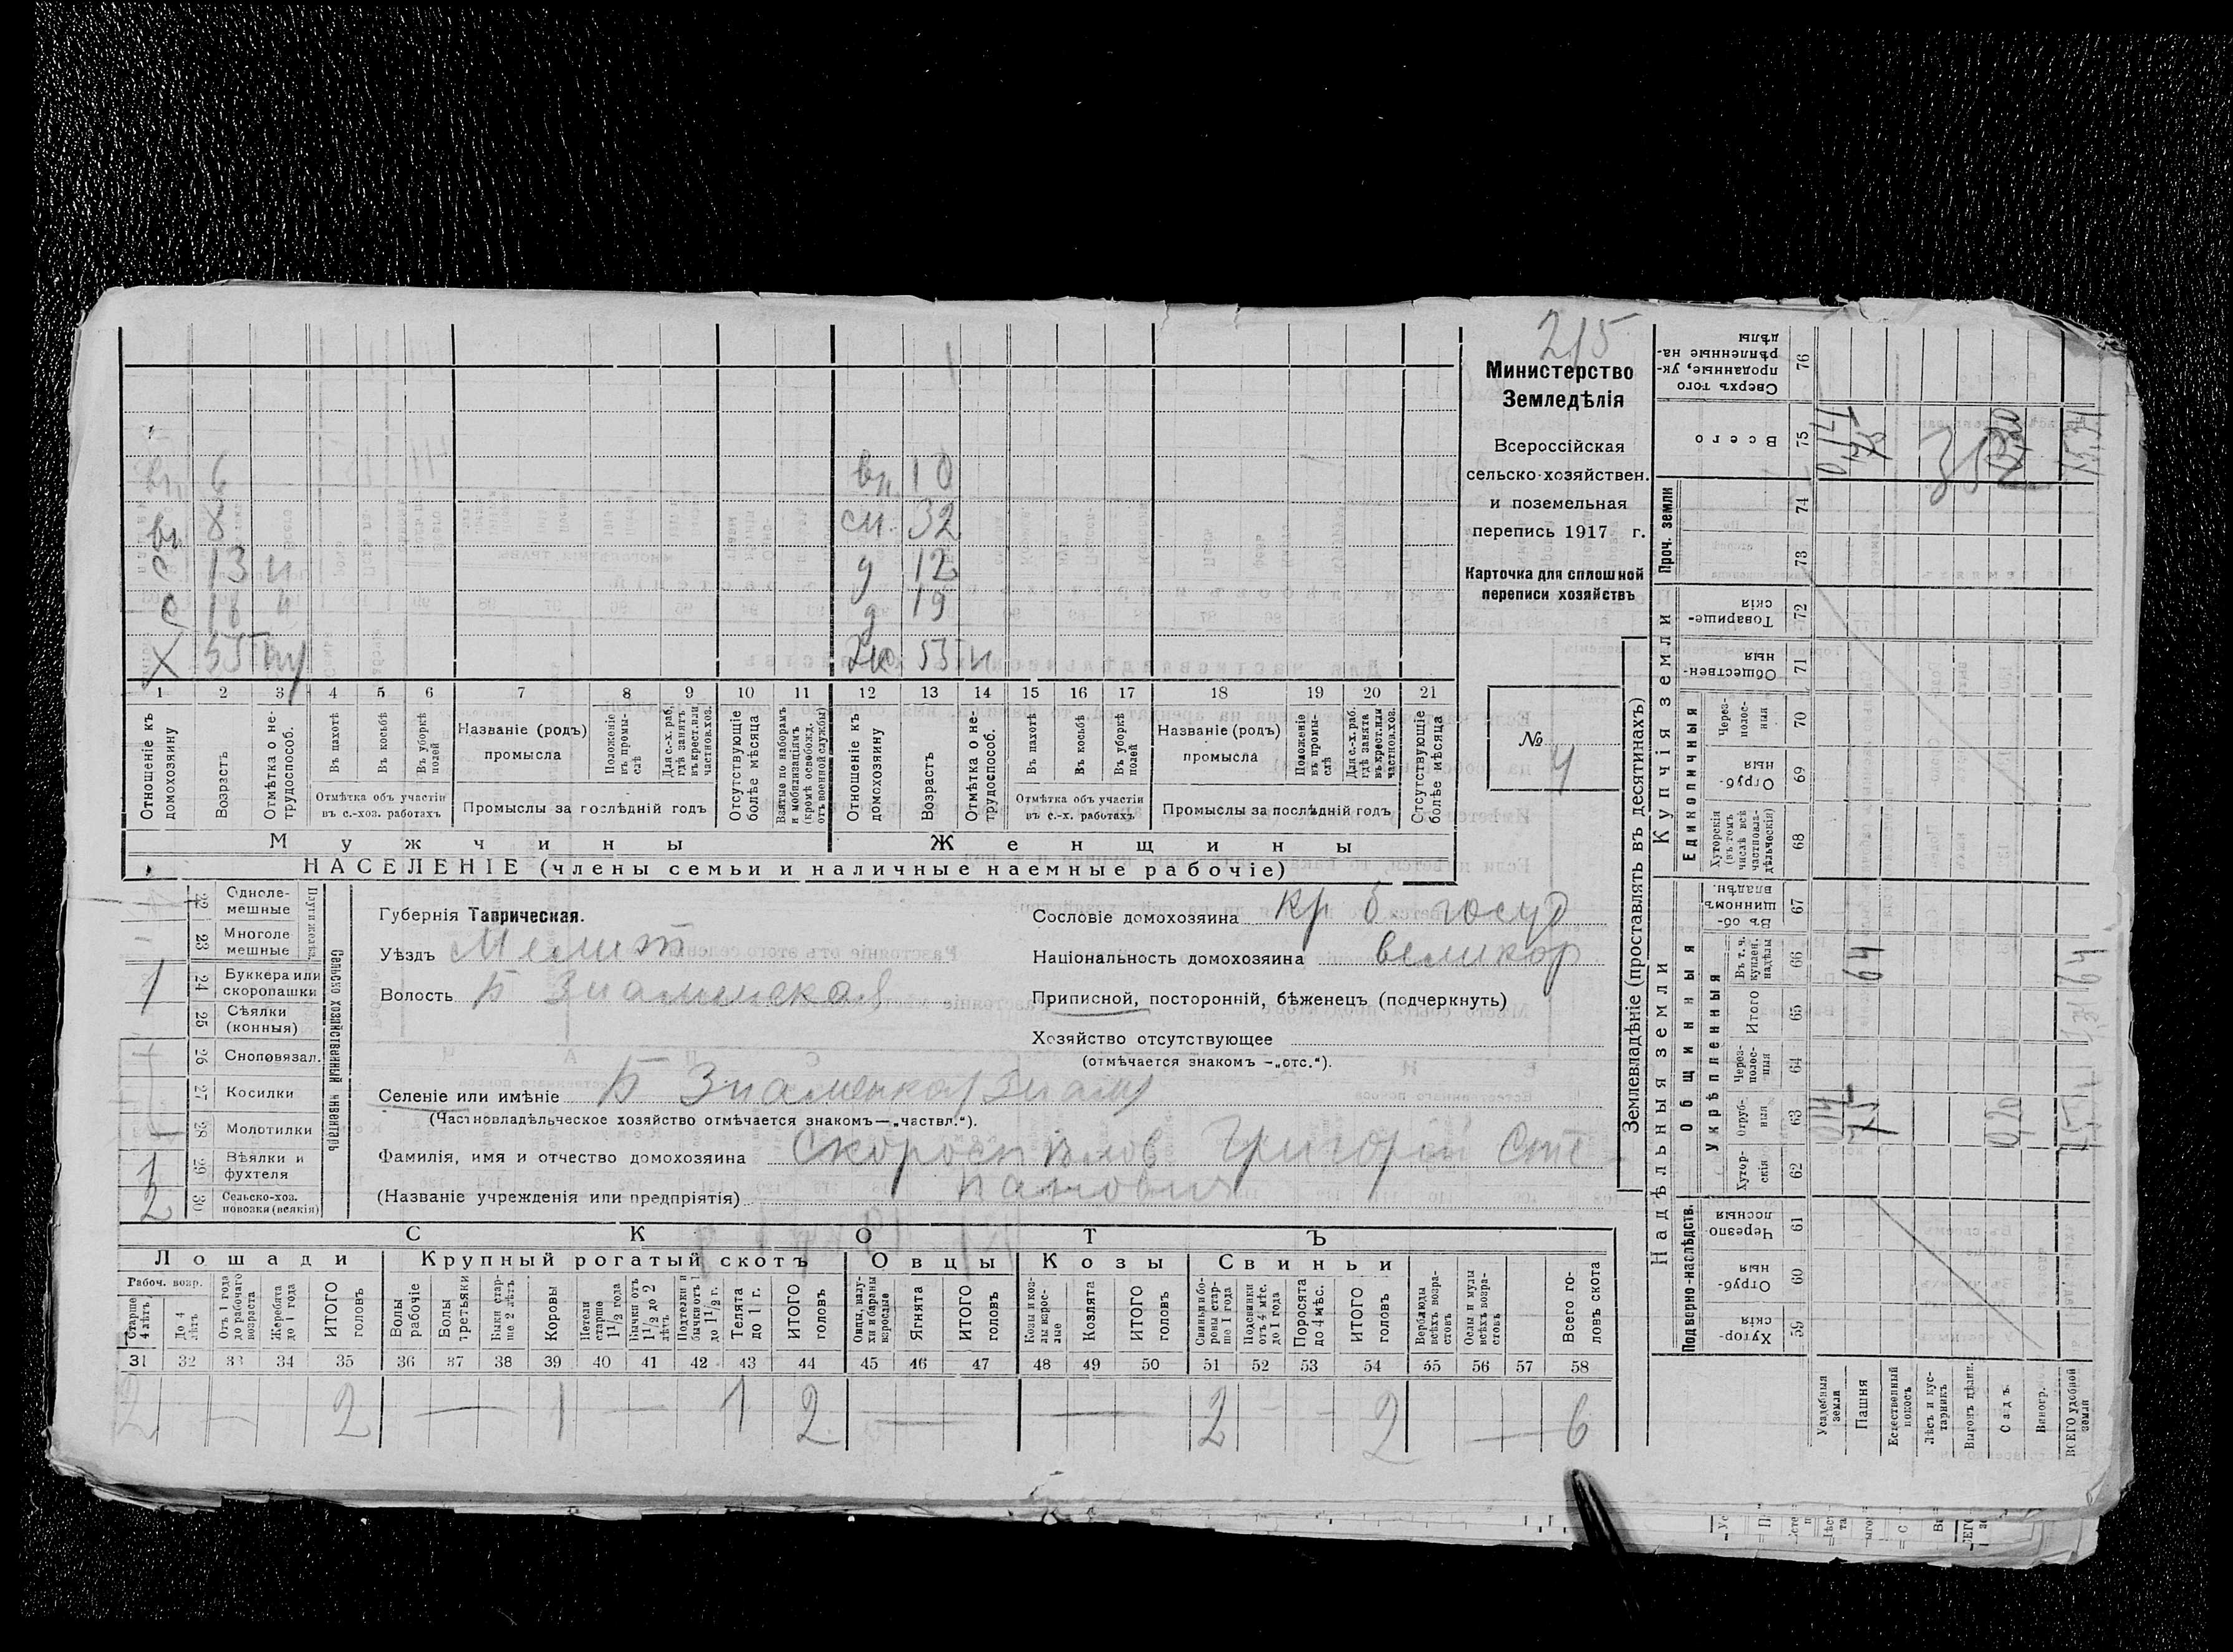 215
Министерство
Земледѣлія
Всероссійская
сельско-хозяйствен.
и поземельная
перепись 1917 г.
Карточка для сплошной
переписи хозяйствъ
№ 4
вн 6
вн 8
с 13 н
с 18 н
Х 55 пу
вн 10
сн. 32
д 12
д 19
Жо 53 н
1 2 3 4 5 6 7 8 9 10 11 12 13 14 15 16 17 18 19 20 21
Отношеніе къ домохозяину
Возрастъ
Отмѣтка о нетрудоспособ.
Въ пахотѣ
Въ косьбѣ
Въ уборкѣ полей
Отмѣтка объ участіи въ с.-хоз. работахъ
Названіе (родъ) промысла
Положеніе въ промыслѣ
Для с.-х. раб, гдѣ занятъ въ крест. или частнов. хоз.
Промыслы за послѣдній годъ
Отсутствующіе болѣе мѣсяца
Взятые по наборамъ и мобилизаціямъ (кромѣ освобожд. отъ военной службы)
Отношеніе къ домохозяину
Возрастъ
Отмѣтка о нетрудоспособ.
Въ пахотѣ
Въ косьбѣ
Въ уборкѣ полей
Отмѣтка объ участіи въ с.-х. работахъ
Названіе (родъ) промысла
Положеніе въ промыслѣ
Для с.-х. раб. гдѣ занята въ крест. или частнов. хоз.
Промыслы за послѣдній годъ
Отсутствующіе болѣе мѣсяца
Мужчины Женщины
НАСЕЛЕНІЕ (члены семьи и наличные наемные рабочіе)
Сельско хозяйственный инвентарь
22 Одноле-мешные
23 Многоле мешные
1 24 Буккера или скоропашки
25 Сѣялки (конныя)
26 Сноповязал.
27 Косилки
28 Молотилки
1 29 Вѣялки и фухтеля
2 30 Сельско-хоз. повозки (всякія)
Губернія Таврическая.
Уѣздъ Мелит
Волость Б Знаменская
Сословіе домохозяина кр б госуд
Національность домохозяина великор
Приписной, посторонній, бѣженецъ (подчеркнуть)
Хозяйство отсутствующее
(отмѣчается знакомъ —„отс.“).
Селеніе или имѣніе Б Знаменка
(Частновладѣльческое хозяйство отмѣчается знакомъ—„частвл.“).
Фамилія, имя и отчество домохозяина Скороспѣлов Григорій Сте-
(Названіе учрежденія или предпріятія) панович
СКОТЪ
Лошади Крупный рогатый скотъ Овцы Козы Свиньи
Рабоч. возр.
Старше 4 лѣтъ
До 4 лѣтъ
Отъ 1 года до рабочаго возраста
Жеребята до 1 года
ИТОГО головъ
Волы рабочіе
Волы третьяки
Быки старше 2 лѣтъ
Коровы
Нетели старше 1½ года
Бычки отъ 1½ до 2 лѣтъ
Подтелки и бычки отъ 1 до 1½ г.
Телята до 1 г.
ИТОГО головъ
Овцы, валухи и бараны взрослые
Ягнята
ИТОГО головъ
Козы и козлы взрослые
Козлята
ИТОГО головъ
Свиньи и боровы старше 1 года
Подсвинки отъ 4 мѣс. до 1 года
Поросята до 4 мѣс.
ИТОГО головъ
Верблюды всѣхъ возрастовъ
Ослы и мулы всѣхъ возрастовъ
Всего головъ скота
31 32 33 34 35 36 37 38 39 40 41 42 43 44 45 46 47 48 49 50 51 52 53 54 55 56 57 58
2 — 2 — 1 — 1 2 — — 2 - - 2 — 6
Землевладѣніе (проставлять въ десятинахъ)
Надѣльныя земли Купчія земли Проч. земли
Подворно-наслѣдств. Общинныя Единоличныя
Укрѣпленныя
Хуторскія 59
Отрубныя 60
Черезполосныя 61
Хуторскія 62
Отрубныя 63
Черезполосныя 64
Итого 65
Въ т. ч. куплен. надѣлы 66
Въ общинномъ владѣн. 67
Хуторскія (въ томъ числѣ всѣ частновладѣльческія) 68
Отрубныя 69
Черезполосныя 70
Общественныя 71
Товарищескія 72
73
74
Всего 75
Сверхъ того проданные, укрѣпленные надѣлы 76
Усадебныя земли
Пашня
Естественный покосъ
Лѣсъ и кустарникъ
Выгонъ дѣлин.
Садъ.
Виногр.
ВСЕГО удобной земли
64
64